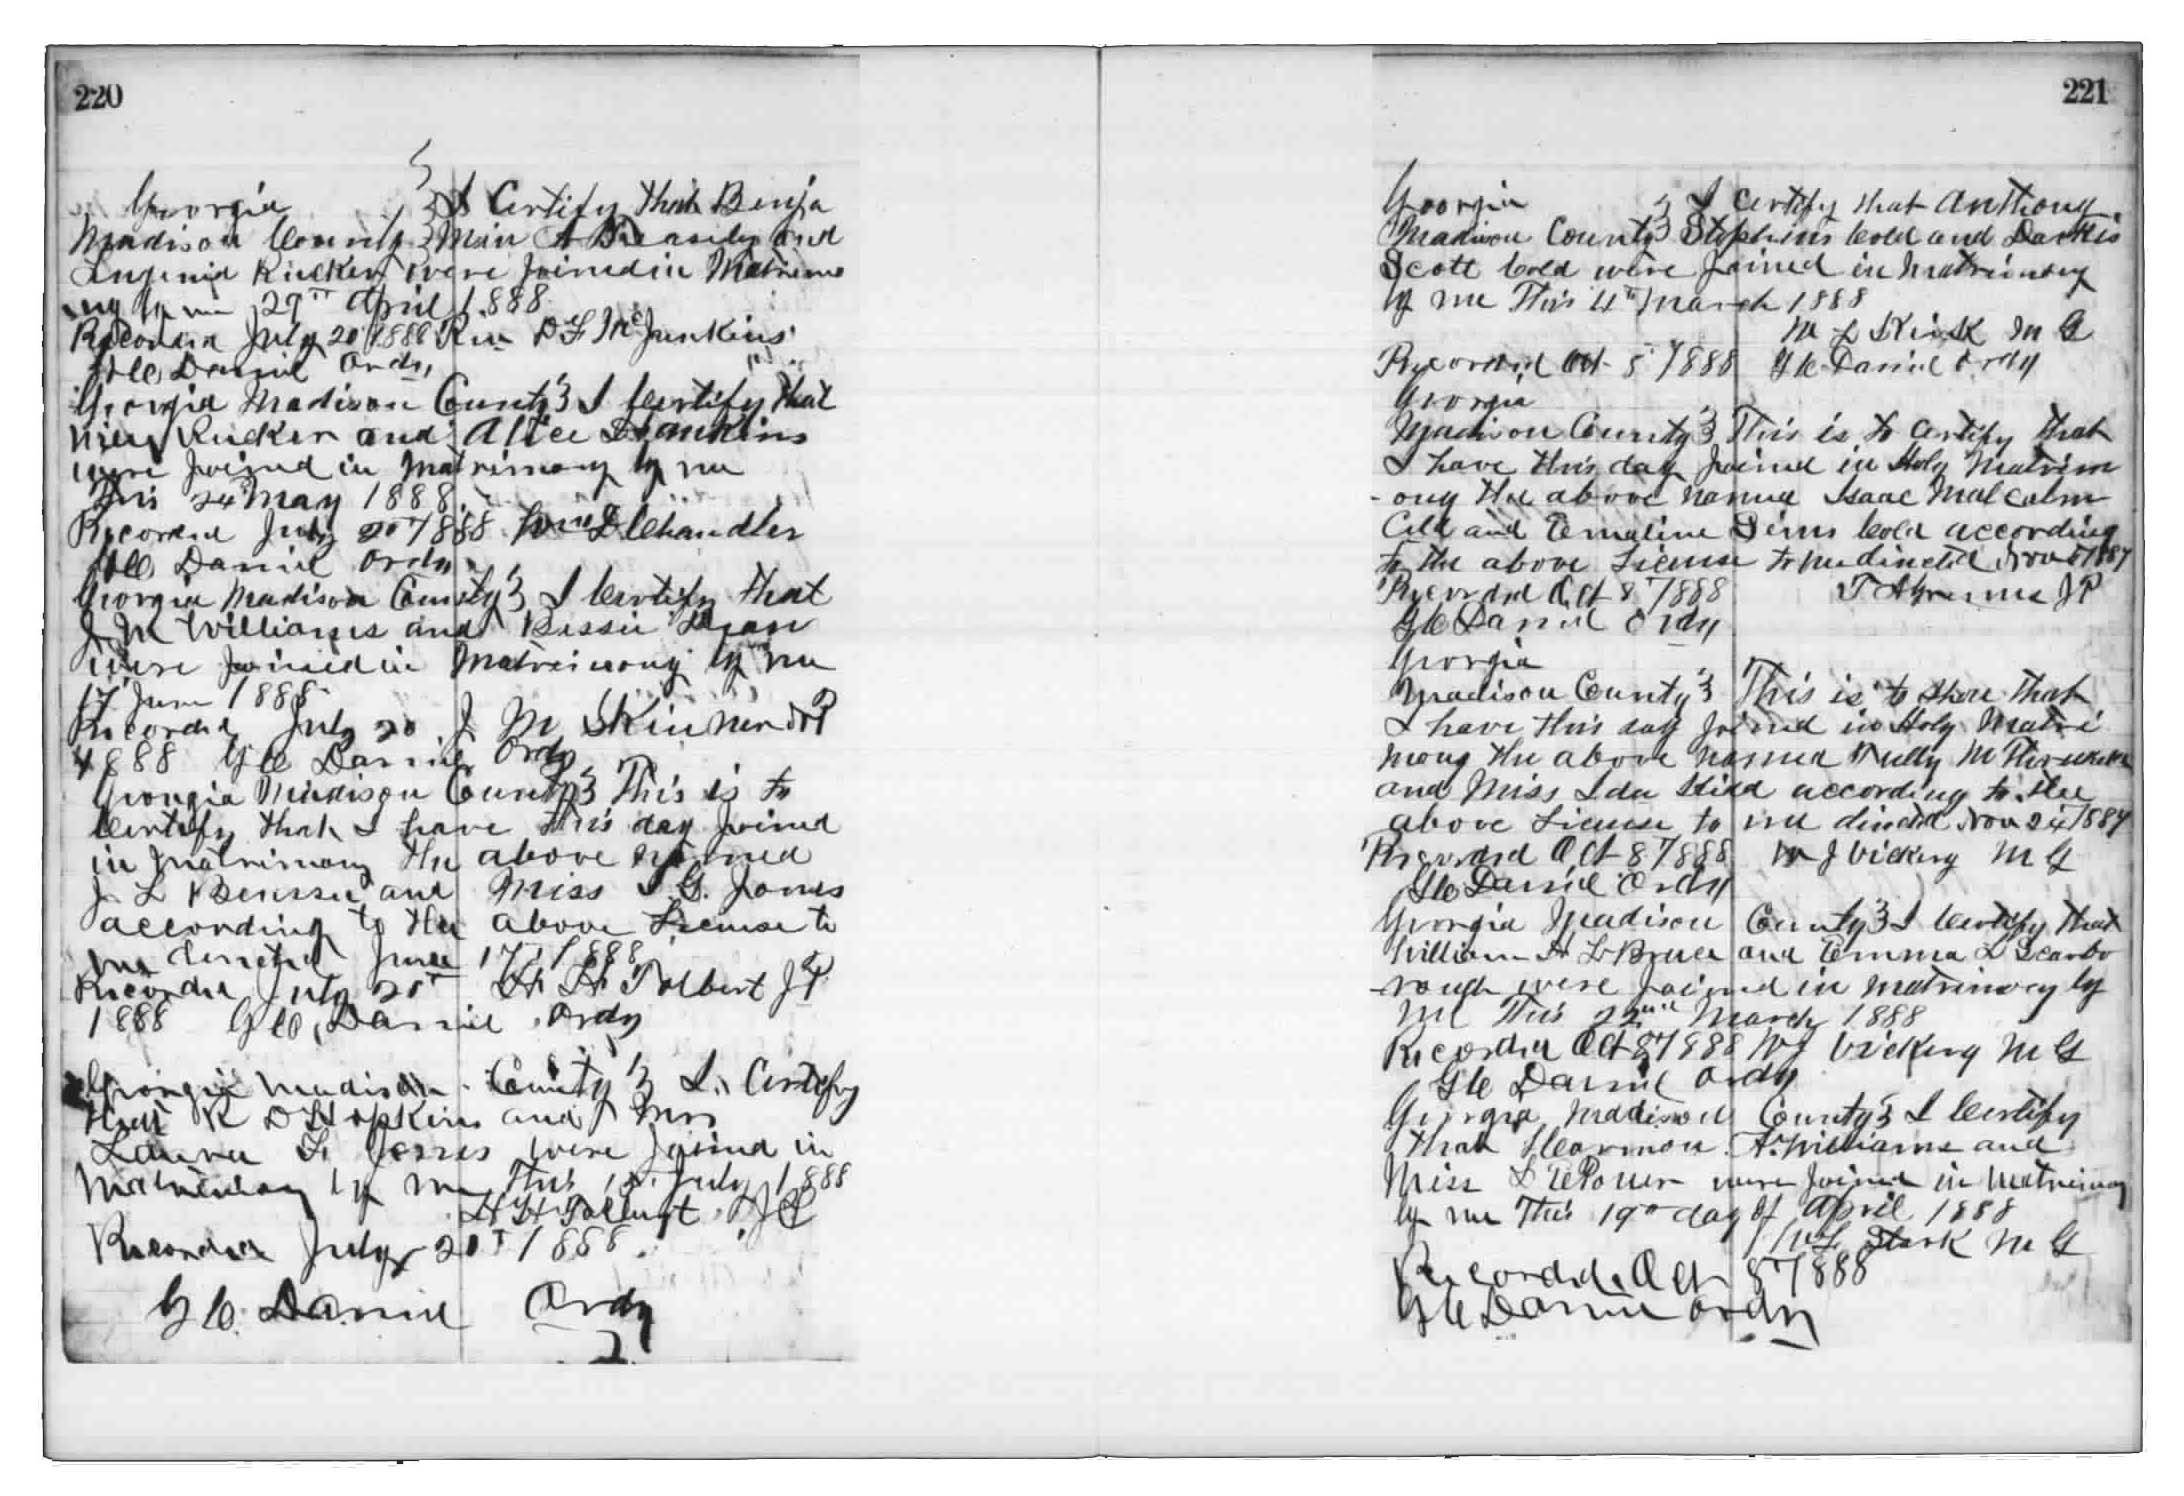 220
Georgia } I Certify that Benja
Madison County } Min A Beasley and
Eugenia Rucker were Joined in Matrimo
ny by me 29th April 1888
Recorded July 20 1888 Rev D F McJunkins
G C Daniel Ordy
Georgia Madison County } I Certify that
Rucker and Alice Hawkins
were Joined in Matrimony by me
This 24 May 1888
Recorded July 20 1888 Wm D Chandler
G C Daniel Ordy
Georgia Madison County } I Certify that
J M Williams and Bessie Dean
were Joined in Matrimony by me
17 June 1888
Recorded July 20 J M Skinner NP
1888 G C Daniel Ordy
Georgia Madison County } This is to
Certify that I have this day Joined
in Matrimony the above named
J L and Miss I G. Jones
according to the above License to
me directed June 17 1888
Recorded July 20 H H Tolbert JP
1888 G C Daniel Ordy
Georgia Madison County } I Certify
that R D Hopkins and Mrs
Laura were Joined in
Matrimony by me This July 1888
H H Tolbert JP
Recorded July 20 1888
G C Daniel Ordy
221
Georgia } I Certify that Anthony
Madison County } Stephens Cold and Darkis
Scott Cold were Joined in Matrimony
by me This 4th March 1888
M G
Recorded Oct 8 1888 G C Daniel Ordy
Georgia
Madison County } This is to Certify that
I have this day Joined in Holy Matrim
-ony the above named Isaac Malcolm
Cold and Emaline Sims Cold according
to the above License to me directed Nov 1887
Recorded Oct 8 1888 J P
G C Daniel Ordy
Georgia
Madison County } This is to Show that
I have this day Joined in Holy Matri
mony the above named M
and Miss Ida according to the
above License to me directed Nov 24 1887
Recorded Oct 8 1888 W J Vickery M G
G C Daniel Ordy
Georgia Madison County } I Certify that
William H L Bruce and Emma L Scarbo
-rough were Joined in Matrimony by
me This 22nd March 1888
Recorded Oct 8 1888 W J Vickery M G
G C Daniel Ordy
Georgia Madison County } I Certify
that Harmon A. Williams and
Miss Power were Joined in Matrimony
by me This 19th day of April 1888
Stark M G
Recorded Oct 8 1888
G C Daniel Ordy